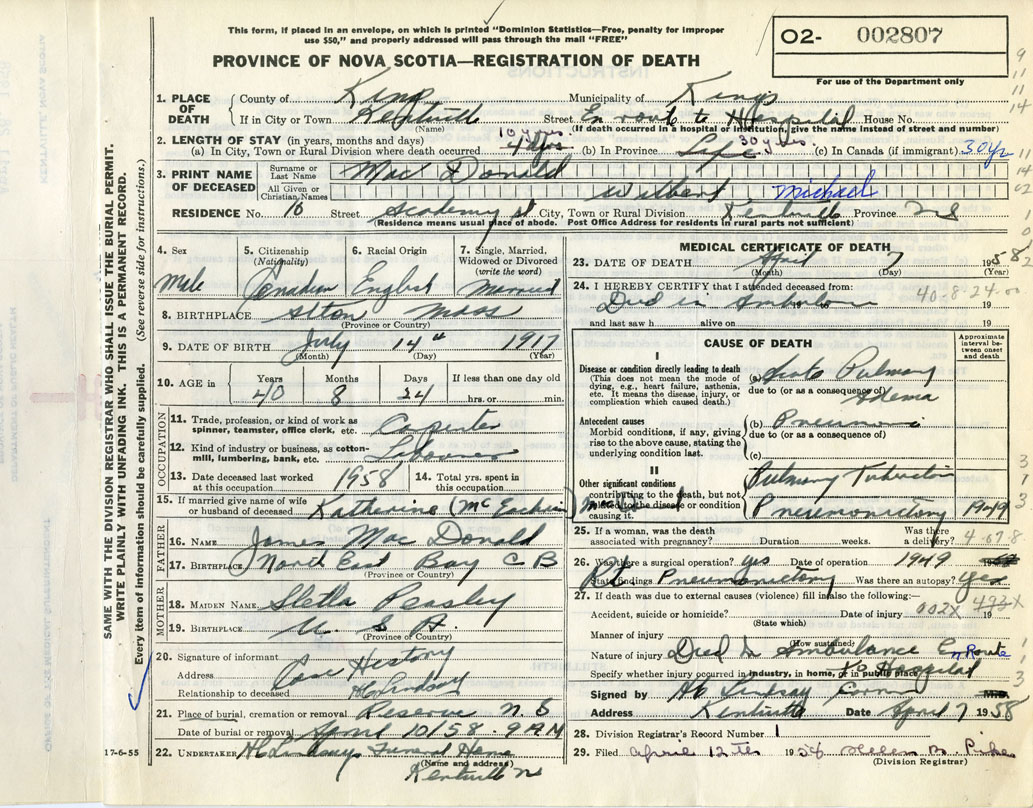 This form, if placed in an envelope, on which is printed "Dominion Statistics—Free, penalty for improper
use $50," and properly addressed will pass through the mail "FREE"
02- 002807
For use of the Department only
PROVINCE OF NOVA SCOTIA—REGISTRATION OF DEATH
SAME WITH THE DIVISION REGISTRAR WHO SHALL ISSUE THE BURIAL PERMIT.
WRITE PLAINLY WITH UNFADING INK. THIS IS A PERMANENT RECORD.
Every item of information should be carefully supplied. (See reverse side for instructions.)
17-6-55
1. PLACE OF DEATH { County of Kings Municipality of Kings
If in City or Town Kentville Street En route to Hospital House No.
(Name) (If death occurred in a hospital or institution, give the name instead of street and number)
2. LENGTH OF STAY (in years, months and days) 10 yrs. 30 yrs.
(a) In City, Town or Rural Division where death occurred 4 yrs (b) In Province Life (c) In Canada (if immigrant) 30 yr
3. PRINT NAME OF DECEASED { Surname or Last Name Mac Donald
All Given or Christian Names Wilbert Michael
RESIDENCE No. 16 Street Academy St City, Town or Rural Division Kentville Province N S
(Residence means usual place of abode. Post Office Address for residents in rural parts not sufficient)
4. Sex Male
5. Citizenship (Nationality) Canadian
6. Racial Origin English
7. Single, Married, Widowed or Divorced (write the word) Married
8. BIRTHPLACE Alton Mass
(Province or Country)
9. DATE OF BIRTH July 14th 1917
(Month) (Day) (Year)
10. AGE in Years Months Days If less than one day old
40 8 24 hrs. or min.
OCCUPATION
11. Trade, profession, or kind of work as spinner, teamster, office clerk, etc. Carpenter
12. Kind of industry or business, as cotton-mill, lumbering, bank, etc. Labourer
13. Date deceased last worked at this occupation 1958
14. Total yrs. spent in this occupation
15. If married give name of wife or husband of deceased Katherine (McEachern) MacDonald
FATHER
16. NAME James Mac Donald
17. BIRTHPLACE North East Bay C B
(Province or Country)
MOTHER
18. MAIDEN NAME Stella Peasley
19. BIRTHPLACE U. S. A.
(Province or Country)
20. Signature of informant Case History
Address H C Lindsay
Relationship to deceased
21. Place of burial, cremation or removal Reserve N. S
Date of burial or removal April 10/58 - 9 AM
22. UNDERTAKER H C Lindsays Funeral Home
(Name and address)
Kentville NS
MEDICAL CERTIFICATE OF DEATH
23. DATE OF DEATH April 7 1958
(Month) (Day) (Year)
24. I HEREBY CERTIFY that I attended deceased from: 40-8-24.00
Died in Ambulance 19
and last saw h alive on 19
CAUSE OF DEATH
Approximate interval between onset and death
I
Disease or condition directly leading to death
(This does not mean the mode of dying, e.g., heart failure, asthenia, etc. It means the disease, injury, or complication which caused death.)
(a) Acute Pulmonary
due to (or as a consequence of) Edema
Antecedent causes
Morbid conditions, if any, giving rise to the above cause, stating the underlying condition last.
(b) Pneumonia
due to (or as a consequence of)
(c)
II
Other significant conditions contributing to the death, but not related to the disease or condition causing it.
Pulmonary Tuberculosis
Pneumonectomy 1949
25. If a woman, was the death associated with pregnancy? Duration weeks. Was there a delivery?
26. Was there a surgical operation? Yes Date of operation 1949
State findings Rt. Pneumonectomy Was there an autopsy? Yes
27. If death was due to external causes (violence) fill in also the following:—
Accident, suicide or homicide? Date of injury 002X 493X 19
(State which)
Manner of injury
(How sustained)
Nature of injury Died In Ambulance En Route
to Hospital
Specify whether injury occurred in industry, in home, or in public place
Signed by H C Lindsay Coroner M.D.
Address Kentville Date April 7 1958
28. Division Registrar's Record Number 1
29. Filed April 12th 1958 Helen B. Pike
(Division Registrar)